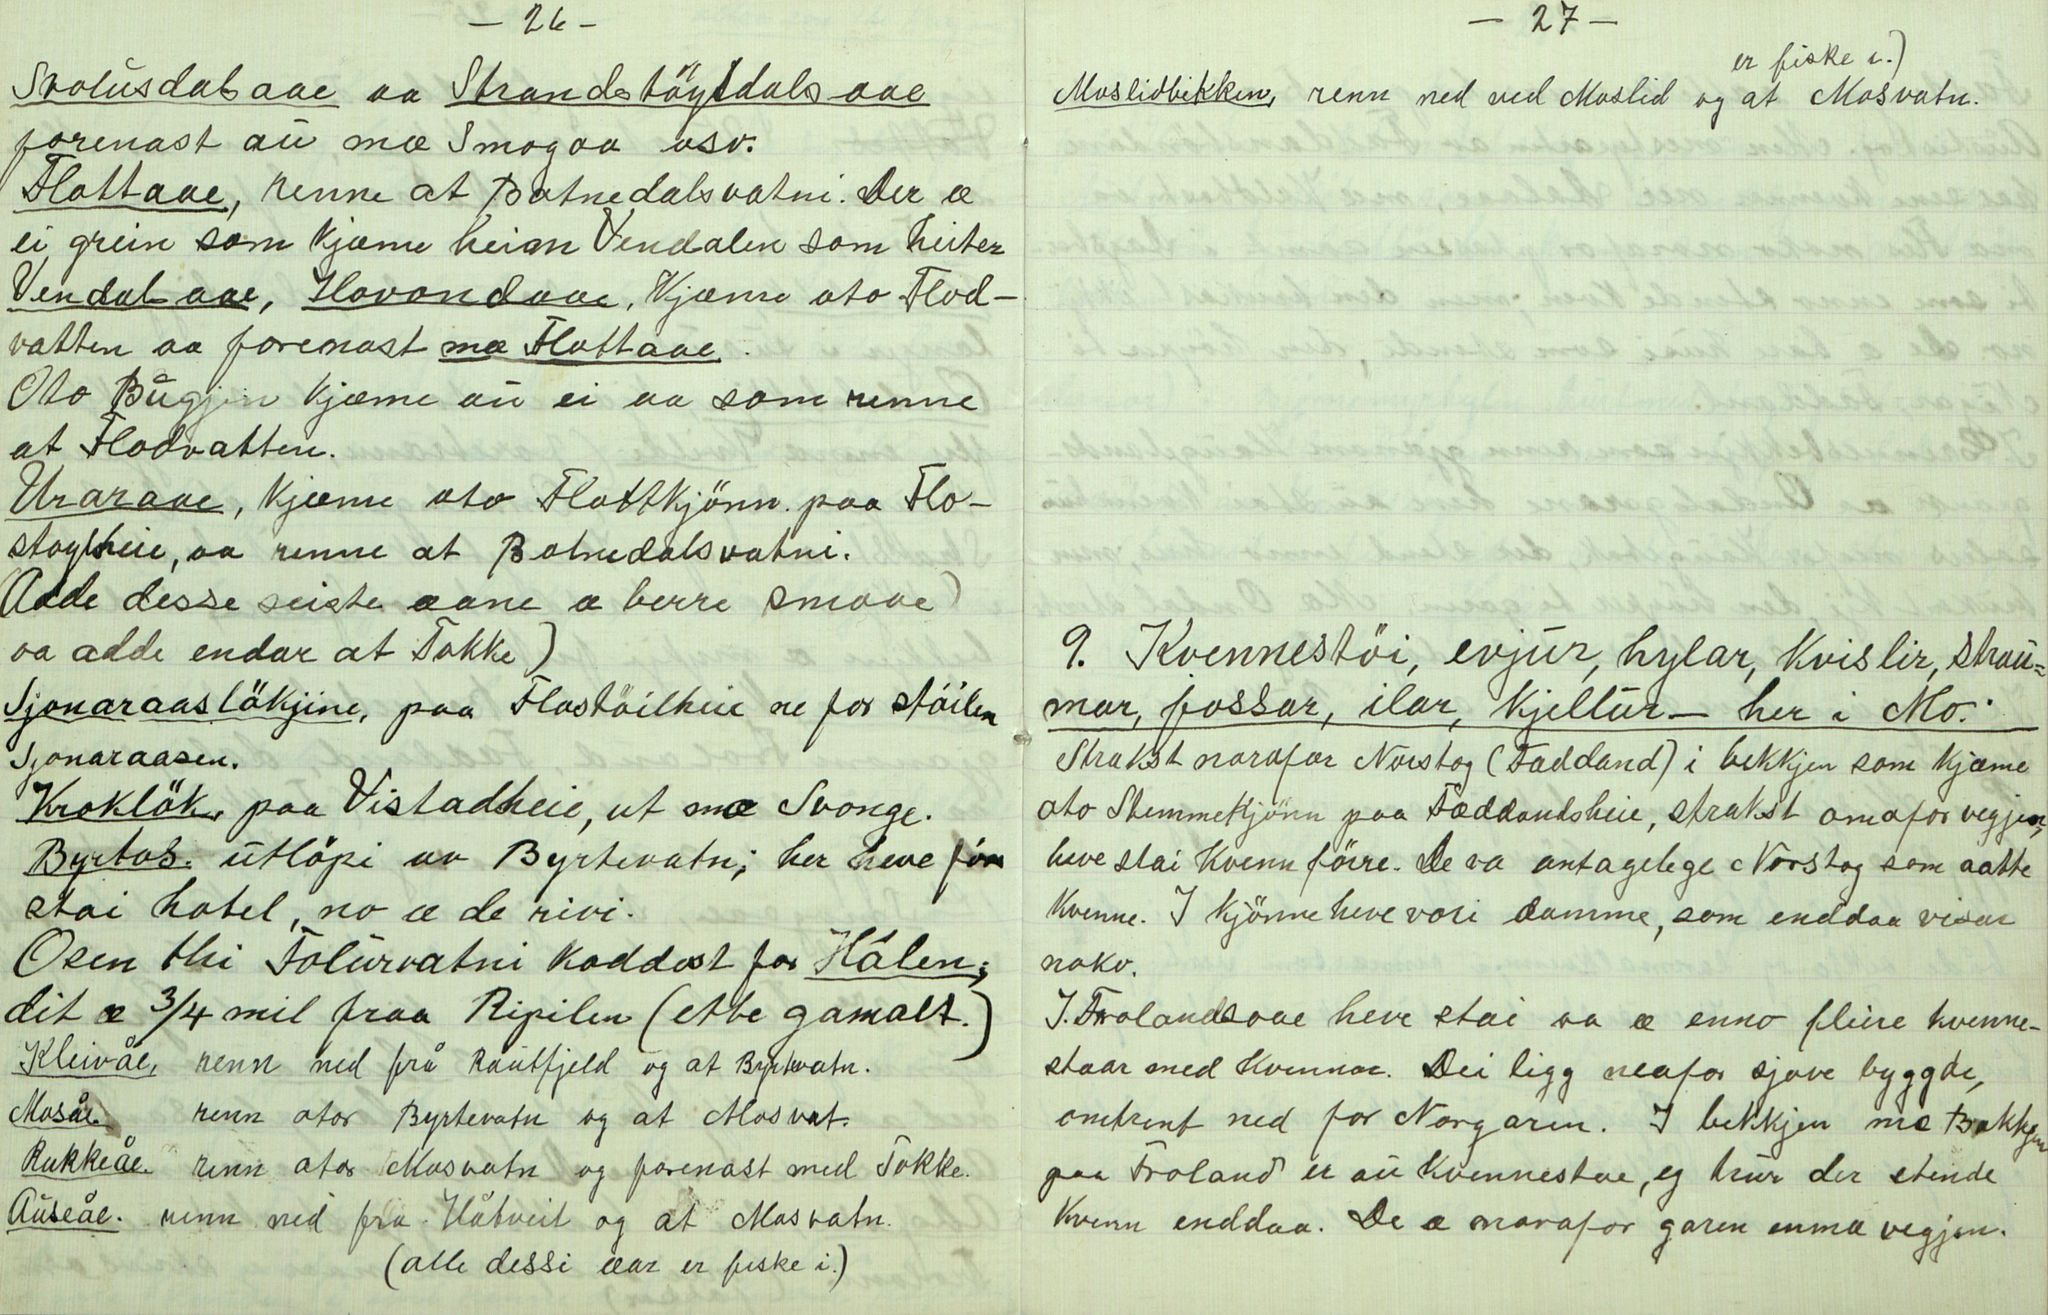 — 26 —
Svolusdalsaae aa Strandstöyldalsaae
forenast au mæ Smogaa osv.
Flottaae, renne at Botnedalsvatni. Der æ
ei grein som kjæme heian Vendalen som heiter
Vendalsaae, Hovondaae, kjæme oto Flod-
vatten aa forenast mæ Flottaae.
Oto Bugjin kjæme au ei aa som renne
at Flodvatten.
Uraraae, kjæme oto Flottkjönn paa Flo-
stoylheie, aa renne at Botnedalsvatni.
(Adde desse seiste aane æ berre smaae)
aa adde endar at Tokke)
Sjonaraaslökjine, paa Flostöilheie ne for stöilen
Sjonaraasen.
Kroklök, paa Vistadheie, ut mæ Svonge.
Byrtos. utlöpi av Byrtevatn; her heve för
stai hotel, no æ de rivi.
Osen thi Tolurvatni kaddast for Hålen;
dit æ 3/4 mil fraa Ripilen (ette gamalt.)
Kleivåe, renn ned frå Rautfjeld og at Byrtevatn.
Mosåe renn otor Byrtevatn og at Mosvat.
Rukkeåe. renn otor Mosvatn og forenast med Tokke.
Auseåe. renn ned fra Håtveit og at Mosvatn.
(alle dessi æar er fiske i.)
— 27 —
er fiske i.)
Moslidbekken, renn ned ved Moslid og at Mosvatn.
9. Kvennestöi, evjur, hylar, kvislir, strau-
mar, fossar, ilar, kjeltur — her i Mo.
Strakst norafor Norstog (Faddland) i bekkjen som kjæme
oto Stemmekjönn paa Fæddandsheie, strakst omafor vegjen,
heve stai kvenn föire. De va antagelege Norstog som aatte
kvenne. I kjönne heve vori damme, som enddaa visar
nokv.
I Frolandsaae heve stai aa æ enno fleire kvenne-
staar med kvennar. Dei ligg neafor sjove byggde,
omtrent ned for Norgaren. I bekkjen mæ Bakken
paa Froland er au kvennestae, eg trur der stende
kvenn enddaa. De æ norafor garen emma vegjen.